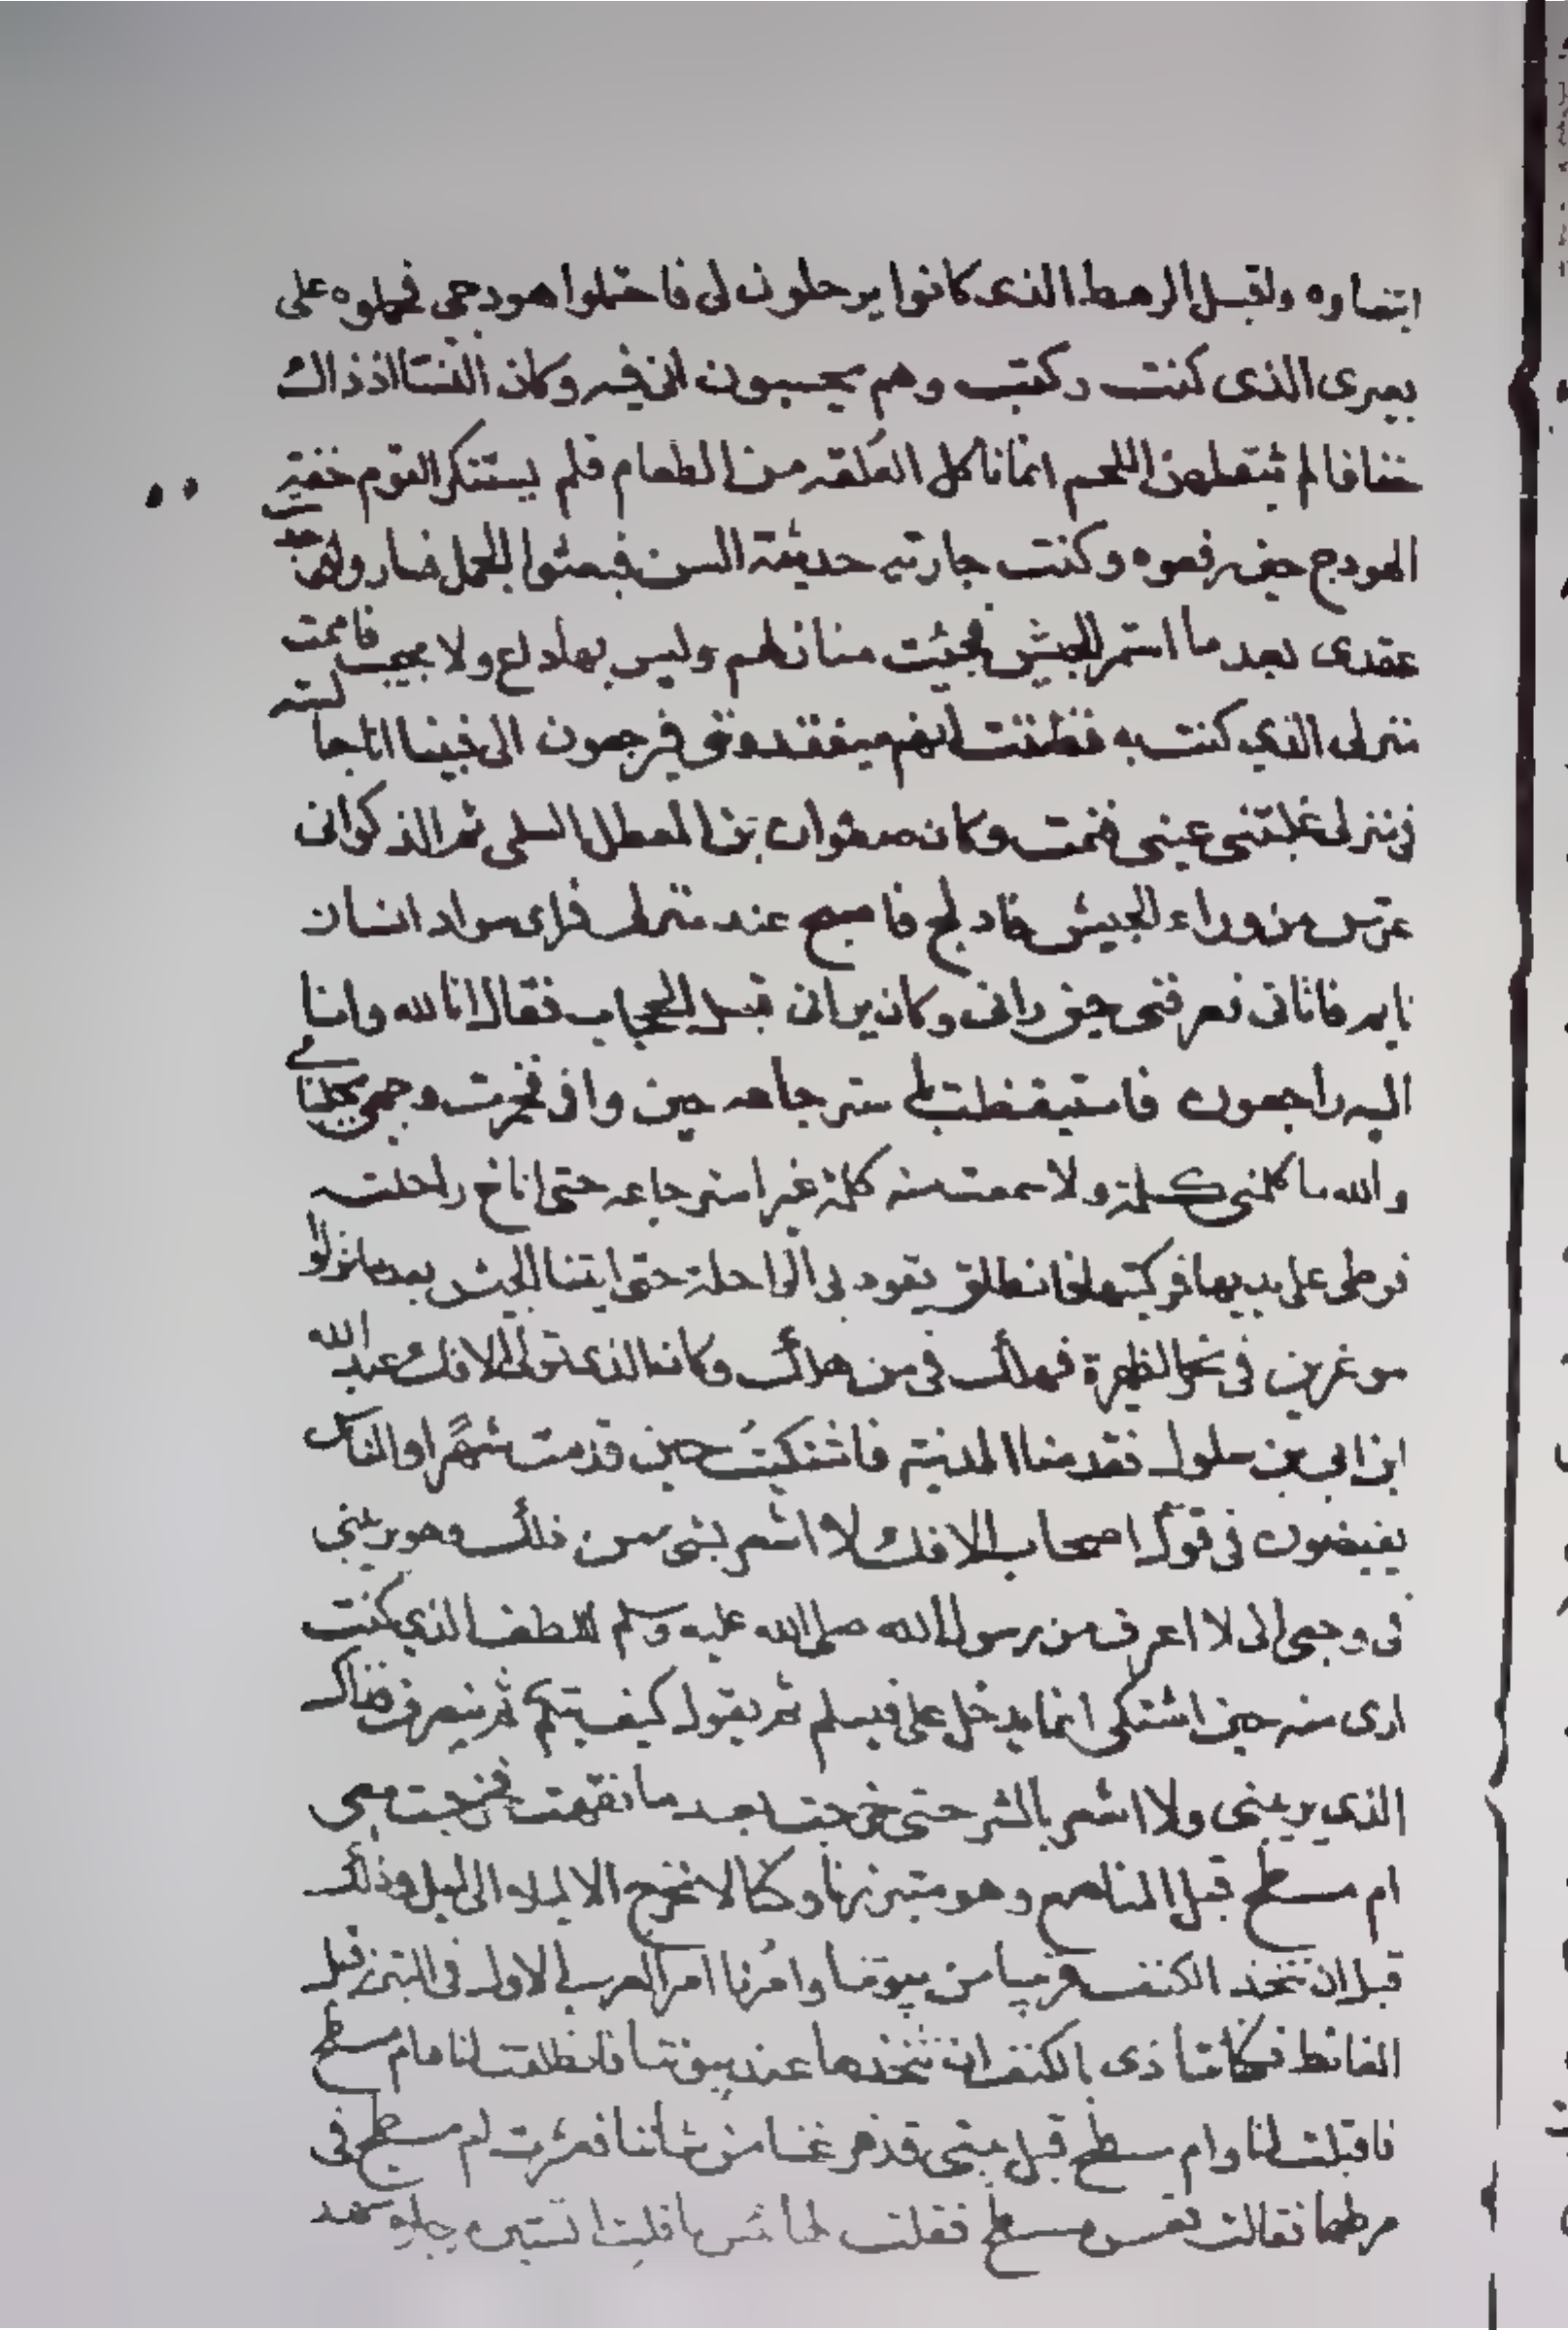 ابتغاوه واقبل الرهط الذى كانوا يرحلون لى فاحتملوا هودجى فحملوه على
بعيرى الذى كنت ركبت وهم يحسبون انى فيه وكان النسا اذ ذاك
خفافا لم يثقلهن اللحم انما ناكل العلقه من الطعام فلم يستنكر القوم خفة
الهودج حين رفعوه وكنت جارية حديثة السن فبعثوا الجمل فساروا
عقدى بعد ما استمر الجيش فجئت منازلهم وليس بها داع ولا مجيب فاممت
منزلى الذي كنت به فظننت انهم سيفقدونى فيرجعون الى فبينا انا جالسة
فى منزلى غلبتنى عينى فنمت وكان صفوان بن المعطل السلمى ثم الذكوانى
عرس من وراء الجيش فادلج فاصبح عند منزلى فراى سواد انسان
نايم فاتانى فعرفنى حين رانى وكان يرانى قبل الحجاب فقال انا لله وانا
اليه راجعون فاستيقظت باسترجاعه حين وانى فخمرت وجهى بجلبابى
والله ما كلمنى كلمة ولا سمعت منه كلمة غير استرجاعه حتى اناخ راحلته
فوطى على يديها فركبتها فانطلق يقود بى الراحلة حتى اتينا الجيش بعدما نزلوا
موغرين فى نحر الظهيرة فهلك فى من هلك وكان الذى تولى الافك عبد الله
ابن ابى بن سلول فقدمنا المدنية فاشتكيت حين قدمت شهرا والناس
يفيضون فى قول اصحاب الافك لا اشعر بشى من ذلك وهو يريبنى
فى وجعى انى لا اعرف من رسول الله صلى الله عليه وسلم اللطف الذي كنت
ارى منه حين اشتكى انما يدخل على فيسلم ثم يقول كيف تيكم ثم ينصرف فذاك
الذي يريبنى ولا اشعر بالشر حتى خرجت بعد ما نقهت فخرجت معى
ام مسطح قبل المناصع وهو متبرزنا وكنا لا نخرج الا ليلا الى ليل وذلك
قبل ان نتخذ الكنف قريبا من بيوتنا وامرنا امر العرب الاول فى التبرز قبل
الغائط فكنا نتاذى بالكنف ان نتخذها عند بيوتنا فانطلقت انا وام مسطح
فاقبلت انا وام مسطح قبل بيتى قد فرغنا من شاننا فعثرت ام مسطح فى
مرطها فقالت تعس مسطح فقلت لها بئس ما قلت اتسبين رجلا شهد